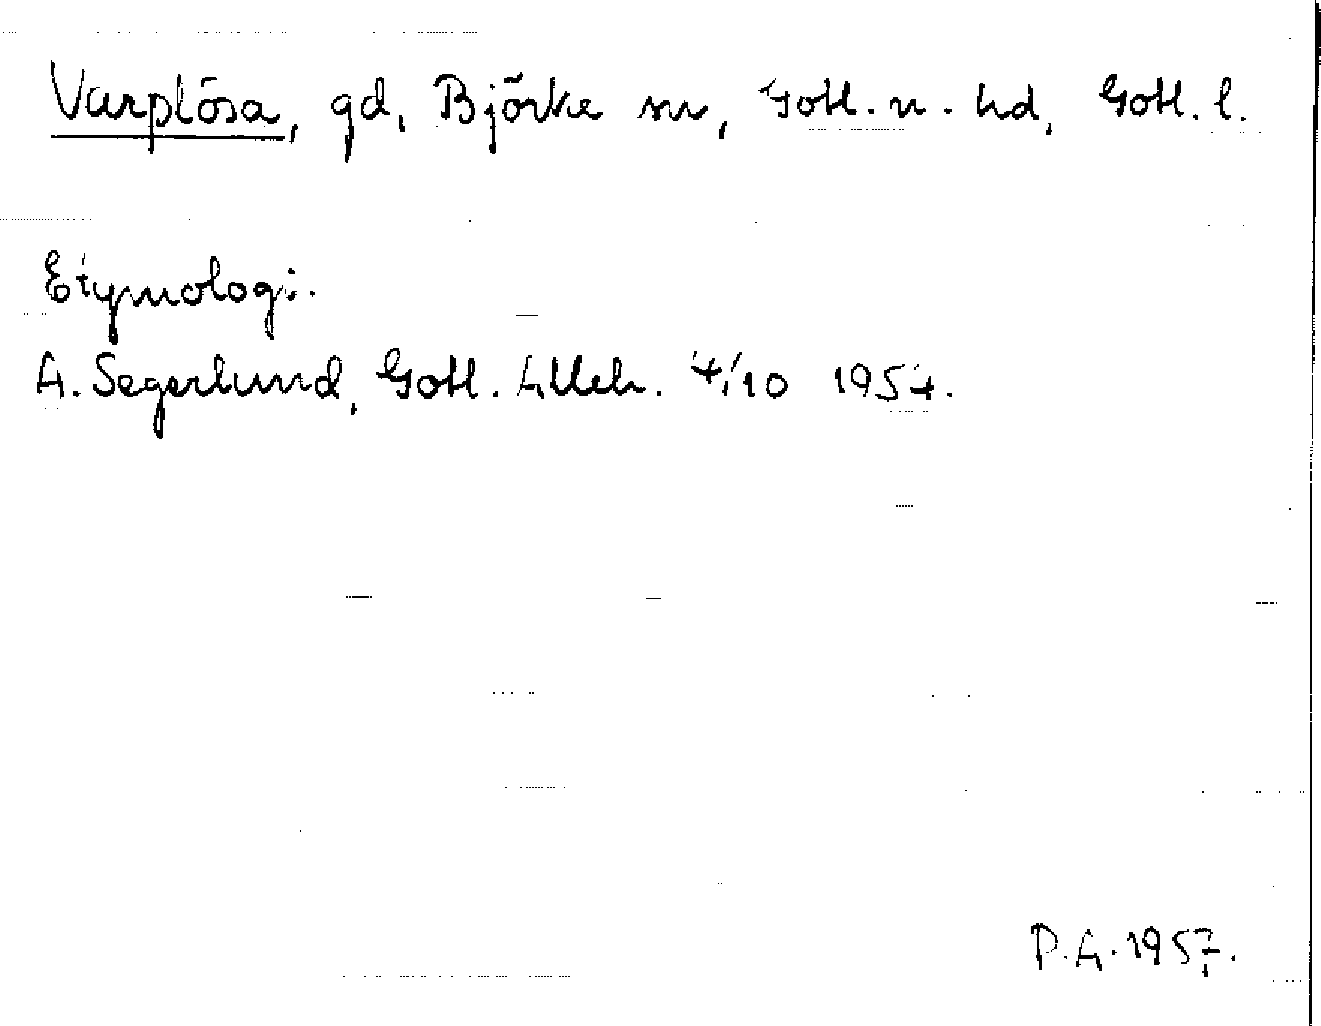 Varplösa, gd, Björke sn, Gotl. n. hd, Gotl. l.
Etymologi.
A. Segerlund, Gotl. Alleh. 4/10 1954.
P.A. 1957.